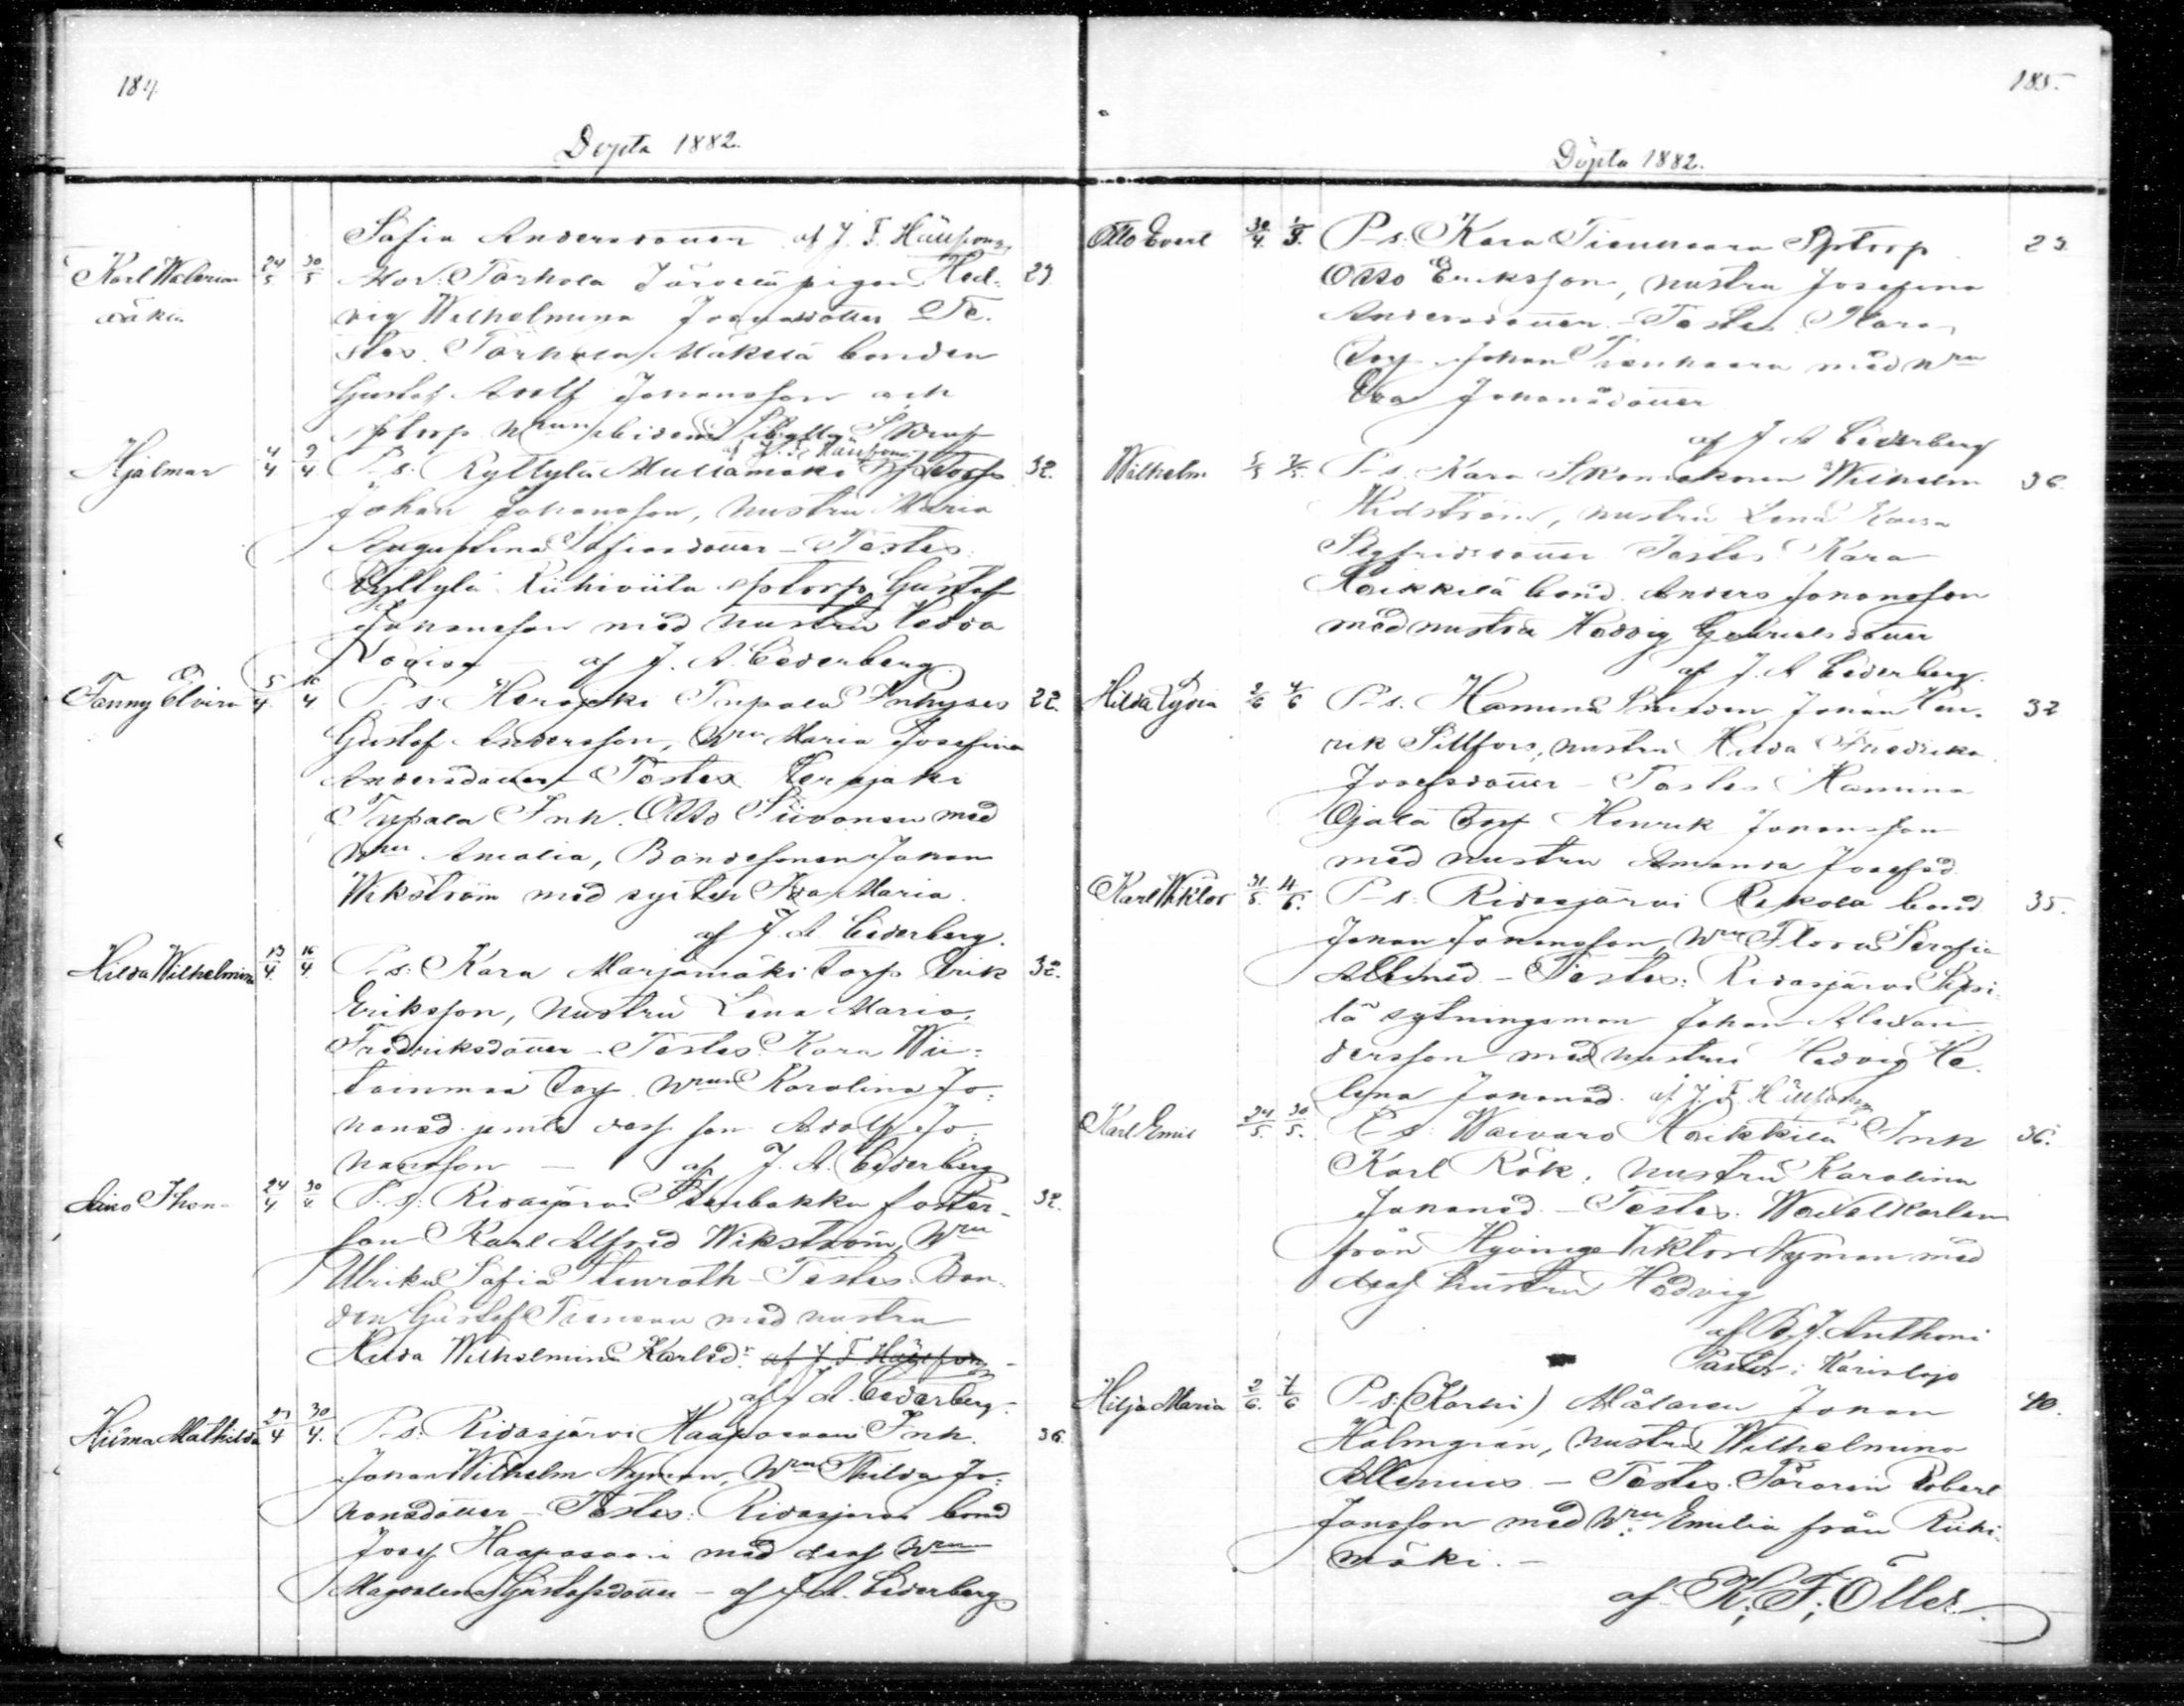 184.
Döpta 1882.
Safia Andersdotter af J. F. Häggfors
Karl Walerian 24/5 30/5 Mor: Torhola Järvelä pigan Hed- 29.
oäkta vig Wilhelmina Johansdotter Te-
stes. Torhola Mäkelä bonden
Gustaf Adolf Johansson och
sptorp hustrun
Hjalmar 4/4 9/4 P-s. Ryttylä Mullamäki sptorp 32.
Johan Johansson, hustru Maria
Augustina - Testes
Ryttylä sptorp Gustaf
Johansson med hustru Hedda
Lovisa - af J. A. Cederberg.
Fanny Elvira 5/4 16/4 P-s. Herajoki Inhyses 22.
Gustaf Andersson, Hru Maria Josefina
Andersdotter - Testes Herajoki
Inh. Otto Siivonen med
Hru Amalia, Bondesonen Johan
Wikström med syster Ida Maria.
af J. A. Cederberg.
Hilda Wilhelmina 13/4 16/4 P-s. Kara Marjamäki torp Erik 32.
Eriksson, hustru Lena Maria
Fredriksdotter - Testes Kara Wii-
tainmaa torp Hrun Karolina Jo-
hansd. jemte dess son Adolf Jo-
hansson - af J. A. Cederberg
24/4 30/4 P-s. Ridasjärvi Stenbakka foster- 32.
son Karl Alfred Wikström, Hru
Ulrika Safia Stenroth - Testes Bon-
den Gustaf med hustru
Hilda Wilhelmina Karlsdr af J. F. Häggfors
af J. A. Cederberg.
Hilma Mathilda 23/4 30/4 P-s. Ridasjärvi Haapasaari Inh. 36
Johan Wilhelm Nyman, Hru Thilda Jo-
hansdotter - Testes: Ridasjärvi bond
Josef Haapasaari med dess Hru
Magdalena Gustafsdotter - af J. A. Cederberg
185.
Döpta 1882.
Otto Evert 30/4 P-s. Kara Tienhaara Sptorp 29.
Otto Eriksson, hustru Josefina
Andersdotter - Testes Kara
torp Johan Tienhaara med Hru
Eva Johansdotter
af J A Cederberg
Wilhelm P-s. Kara Skomakaren Wilhelm 36.
Widström, hustru Lena Kaisa
Sigfridsdotter Testes Kara
Heikkilä bond. Anders Johansson
med hustru Hedvig Gabrielsdotter
af J. A Cederberg.
Hilda Lydia 2/6 4/6 P-s. Hamina Smeden Johan Hen- 32
rik Sillfors, hustru Hilda Fredrika
Josefsdotter - Testes Hamina
Ojala torp Henrik Johansson
med hustru Amanda Josefsd.
Karl Wiktor 31/5. 4/6. P-s. Ridasjärvi Rekola bond 35.
Johan Johansson, Hru Flora Serafia
- Testes: Ridasjärvi Seppi-
lä sytningsman Johan Alexan-
dersson med hustru Hedvig He-
lena Johansd. af J. F. Häggfors
Karl Emil 24/5. 30/5. P-s. Waivaro Heikkilä Inh 36.
Karl Rök, hustru Karolina
Johansd. - Testes. Wexelkarlen
från Hyvinge Viktor Nyman med
dess hustru Hedvig
af B. J. Anthoni
Pastor i Karislojo
Hilja Maria 2/6. 7/6 P-s (Karhi) Målaren Johan 40.
Holmgrén, hustru Wilhelmina
Allenius - Testes. Robert
Jansson med Hru Emilia från Riihi-
mäki. -
af K. F. Öller.